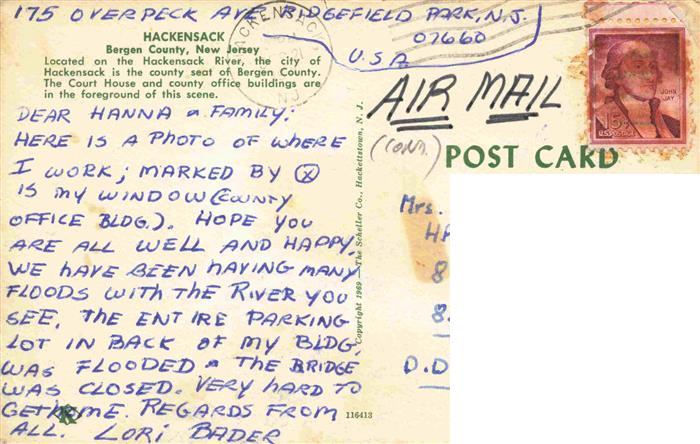 175 OVERPECK AVE RIDGEFIELD PARK, N.J.
07660
U.S.A
HACKENSACK
Bergen County, New Jersey
Located on the Hackensack River, the city of
Hackensack is the county seat of Bergen County.
The Court House and county office buildings are
in the foreground of this scene.
HACKENSACK
NJ
JOHN
JAY
15¢
U.S. POSTAGE
AIR MAIL
(CONT.)
POST CARD
DEAR HANNA & FAMILY;
HERE IS A PHOTO OF WHERE
I WORK; MARKED BY Ⓧ
IS MY WINDOW (COUNTY
OFFICE BLDG.). HOPE YOU
ARE ALL WELL AND HAPPY.
WE HAVE BEEN HAVING MANY
FLOODS WITH THE RIVER YOU
SEE. THE ENTIRE PARKING
LOT IN BACK OF MY BLDG.
WAS FLOODED & THE BRIDGE
WAS CLOSED. VERY HARD TO
GET HOME. REGARDS FROM
ALL. LORI BADER
116413
Copyright 1969—The Scheller Co., Hackettstown, N. J.
Mrs.
HA
8
8.
D.D